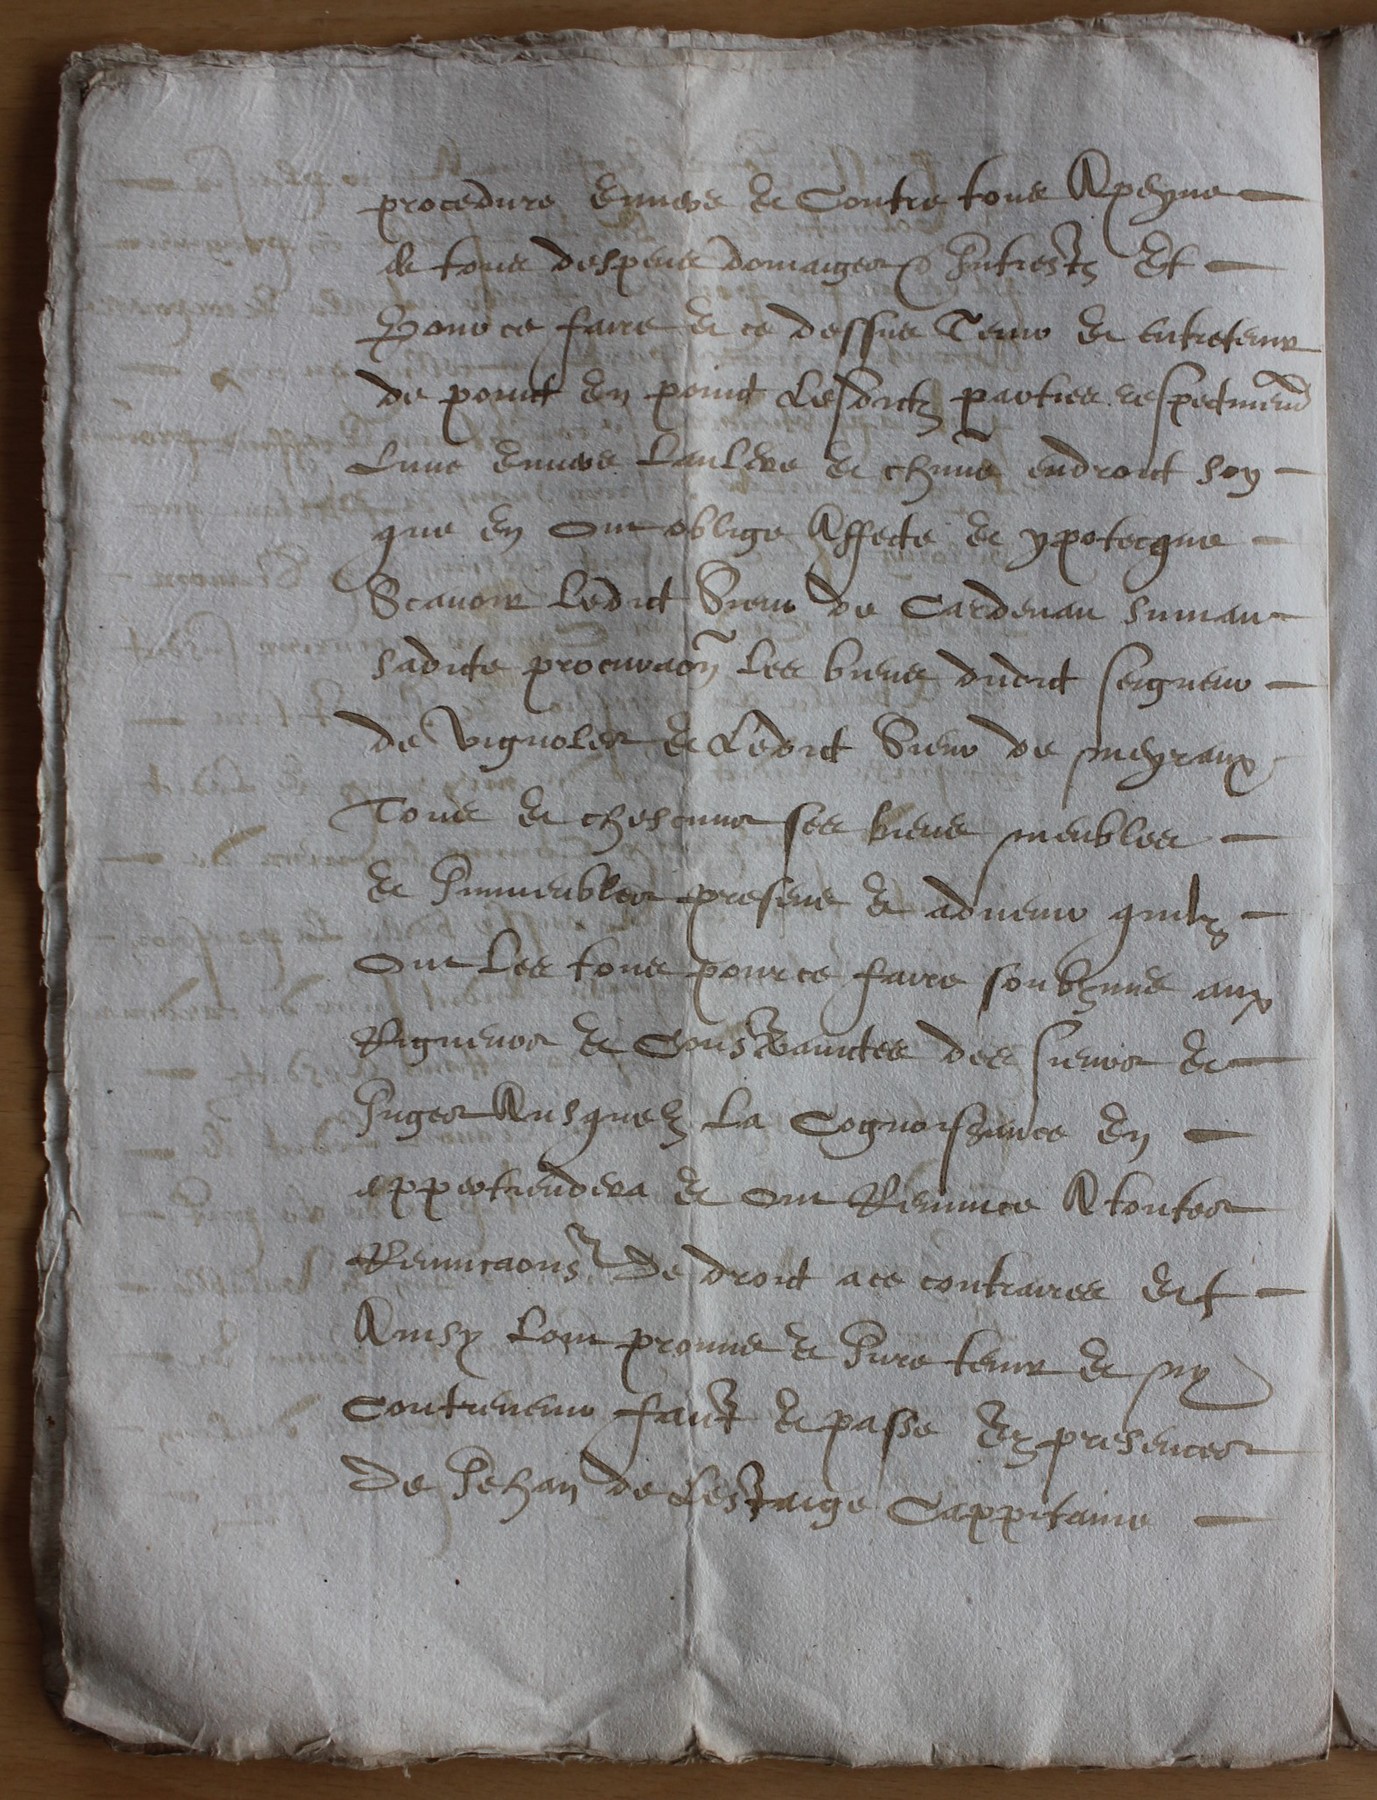 procedure envers & contre tous A peyne
de tous despens domaiges & Interestz Et
Pour ce faire & ce dessus Tenir & entretenir
de point en point Lesdictz parties respectivemt
Lune envers Laultre & chune endroict soy
que en ont oblige Affecte & ypotecque
Scavoir Ledict Sieur de Cardenau suivant
sadicte procuraon les biens dudict seigneur
de Vignoles & Ledict Sieur de meyraux
Tous & chescuns ses biens meubles
& Immeubles presens & advenir quilz
Ont Les tous pour ce faire soubzmis aux
Rigueurs & Constrainctes des sieurs &
Juges Ausquelz La Cognoissance en
appertiendera & ont Renunce A toutes
Renuncaons de droict a ce contraires Et
Ainsy Lont promis & Jure tenir & ny
Contrevenir faict & passe Ez presences
De Jehan de Lestaige Cappitaine